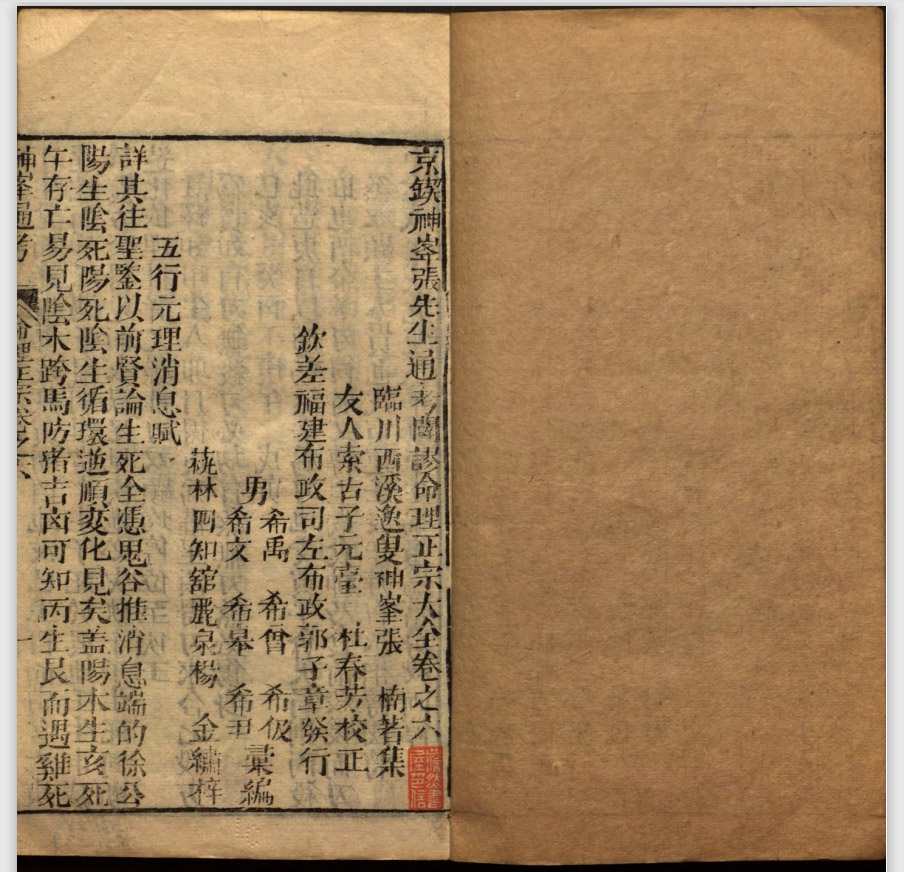 京鍥神峯張先生通考闢謬命理正宗大全卷之六
臨川西溪逸叟神峯張 楠著集
友人索古子元臺 杜春芳校正
欽差福建布政司左布政郭子章發行
男 希禹 希曾 希伋
希文 希皋 希尹 彙編
萟林四知舘麗泉楊 金繡梓
五行元理消息賦
詳其往聖鍳以前賢論生死全憑鬼谷推消息端的徐公
陽生陰死陽死陰生循環逆順変化見矣盖陽木生亥死
午存亡易見陰木跨馬防猪吉凶可知丙生艮而遇雞死
神峯通考 命理正宗卷之六 一